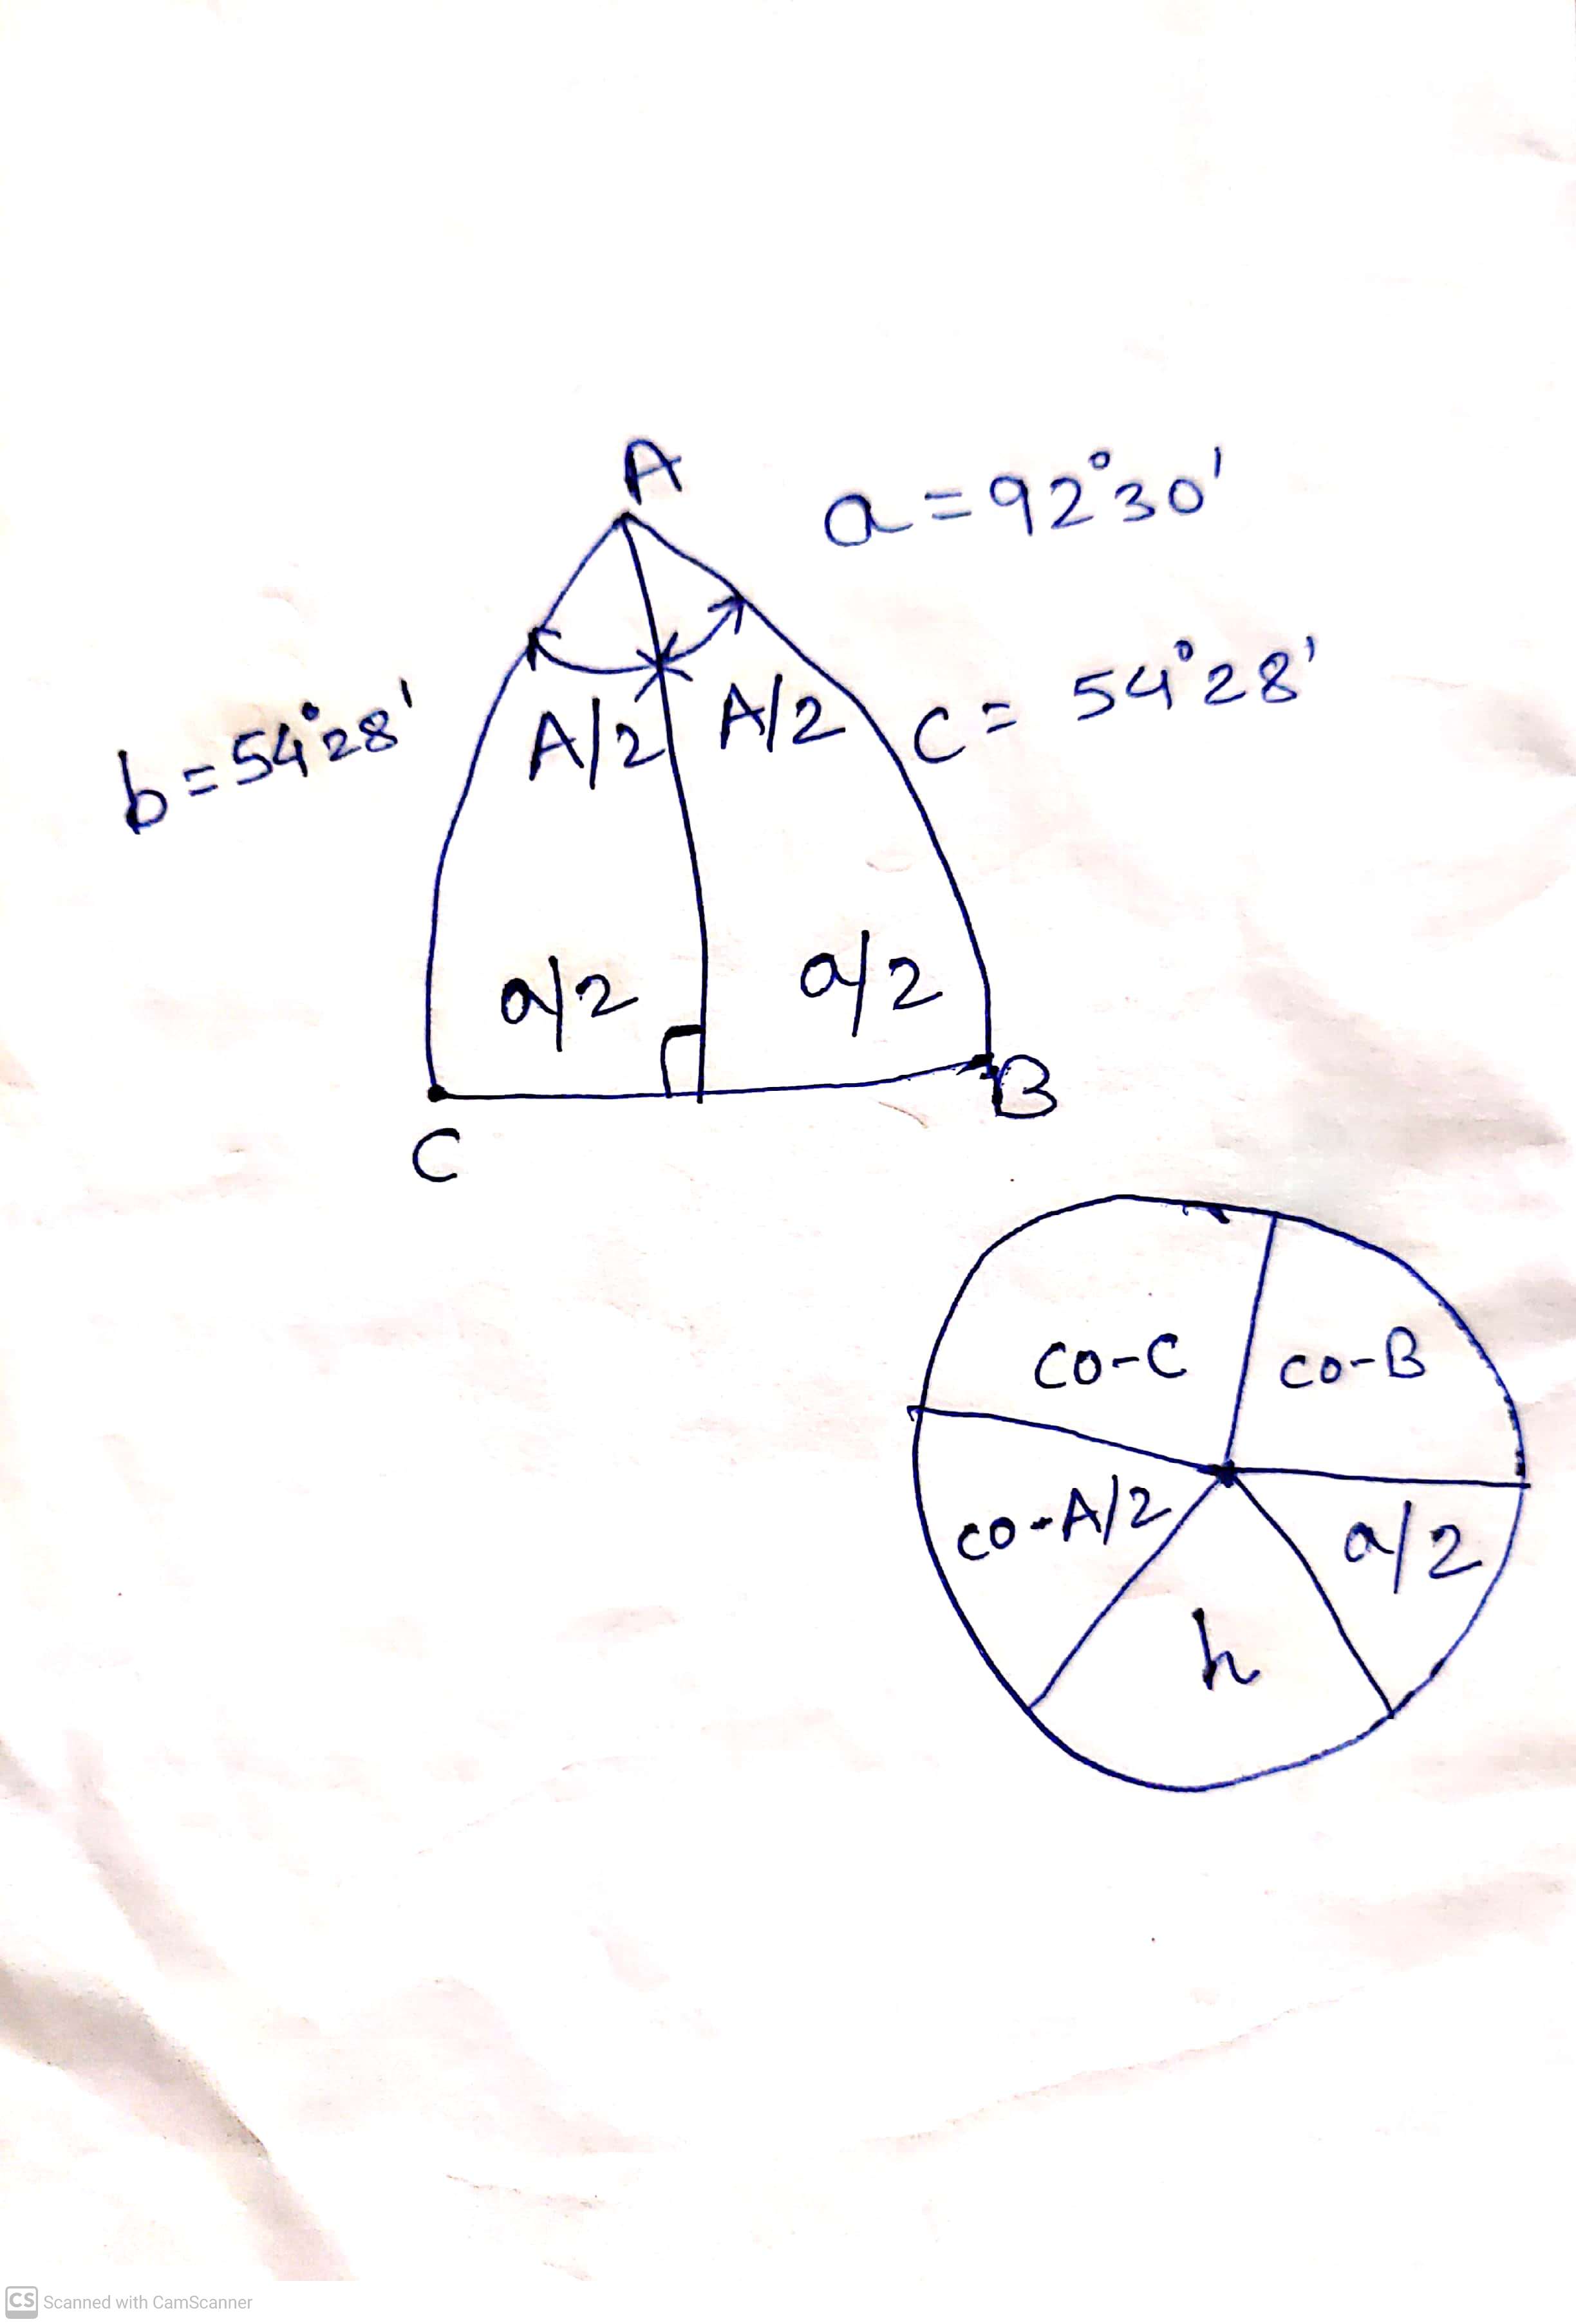 A
a = 92°30'
b = 54°28'
A/2
A/2
c = 54°28'
a/2
a/2
B
C
co-C
co-B
co-A/2
a/2
h
CS Scanned with CamScanner